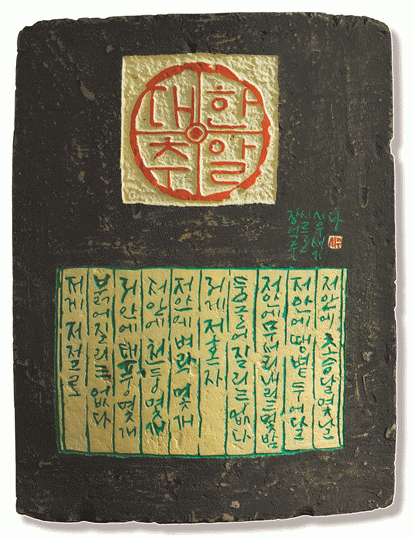 대추
한알
장석주
시를
시우 새기
다
저게 저절로
붉어질 리는 없다
저 안에 태풍 몇 개
저 안에 천둥 몇 개
저 안에 벼락 몇 개
저게 저 혼자
둥글어질 리는 없다
저 안에 무서리 내리는 몇 밤
저 안에 땡볕 두어 달
저 안에 초승달 몇 날